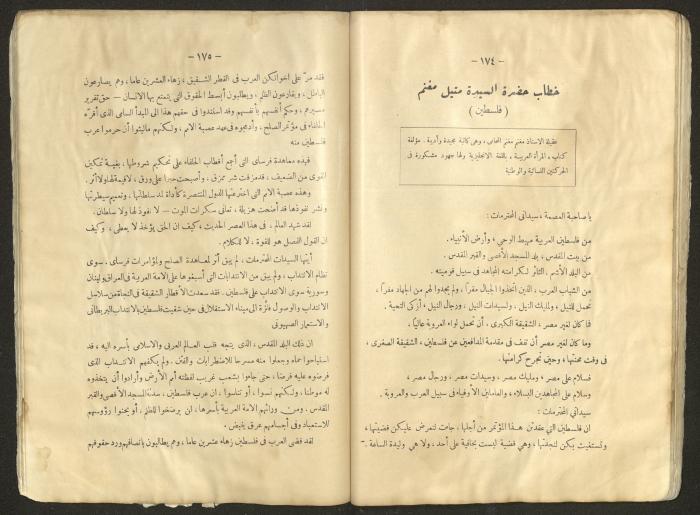 - ١٧٤ -
خطاب حضرة السيدة متيل مغنم
( فلسطين )
عقيلة الاستاذ مغنم مغنم المحامى ، وهى كاتبة مجيدة وأديبة . مؤلفة
كتاب ، المرأة العربية ، باللغة الانجليزية ولها جهود مشكورة فى
الحركتين النسائية والوطنية
يا صاحبة العصمة ، سيداتى المحترمات :
من فلسطين العربية مهبط الوحى ، وأرض الأنبياء .
من بيت المقدس ، بلد المسجد الأقصى والقبر المقدس .
من البلد الأشم ، الثائر لكرامته المجاهد فى سبيل قوميته .
من الشباب العرب ، الذين اتخذوا الجبال مقرا ، ولم يجدوا لهم من الجهاد مفرا ،
تحمل للنيل ، ولمليك النيل ، ولسيدات النيل ، ورجال النيل ، أزكى التحية .
فما كان لغير مصر ، الشقيقة الكبرى ، أن تحمل لواء العروبة عاليا .
وما كان لغير مصر أن تقف فى مقدمة المدافعين عن فلسطين ، الشقيقة الصغرى ،
فى وقت محنتها ، وحين تجرح كرامتها .
فسلام على مصر ، ومليك مصر ، وسيدات مصر ، ورجال مصر ،
وسلام على المجاهدين البسلاء ، والعاملين الأوفياء فى سبيل العرب والعروبة .
سيداتى المحترمات :
ان فلسطين التى عقدتن هذا المؤتمر من أجلها ، جاءت لتعرض عليكن قضيتها ،
وتستغيث بكن لنجدتها ، وهى قضية ليست بخافية على أحد ، ولا هى وليدة الساعة .
- ١٧٥ -
فقد مرّ على اخوانكن العرب فى القطر الشقيق ، زهاء العشرين عاما ، وهم يصارعون
الباطل ، ويقارعون الظلم ، ويطالبون أبسط الحقوق التى يتمتع بها الانسان — حق تقرير
مصيرهم ، وحكم أنفسهم بأنفسهم وقد استندوا فى حقهم هذا الى المبدأ السامى الذى أقره
الحلفاء فى مؤتمر الصلح . وأدمجوه فى عهد عصبة الامم ، ولكنهم مالبثوا أن حرموا عرب
فلسطين منه
فهذه معاهدة فرساى التى أجمع أقطاب الحلفاء على تحكيم شروطها ، بغية تمكين
القوى من الضعيف ، قد مزقت شر ممزق ، وأصبحت حبرا على ورق ، لاقيمة لها ولا أثر .
وهذه عصبة الامم التى اخترعتها الدول المنتصرة كأداة لمد سلطانها ، وتعميم سيطرتها
ونشر نفوذها قد أضحت هزيلة ، تعانى سكرات الموت — لا نفوذ لها ولا سلطان .
لقد شهد العالم ، فى هذا العصر الحديث ، كيف ان الحق يؤخذ لا يعطى ، وكيف
ان القول الفصل هو للقوة ، لا للكلام .
أيتها السيدات المحترمات ، لم يبق أثر لمعاهدة الصلح ولمؤامرات فرساى . سوى
نظام الانتداب ، ولم يبق من الانتدابات التى أسبغوها على الامة العربية فى العراق ولبنان
وسورية سوى الانتداب على فلسطين . فقد سعدت الأقطار الشقيقة فى النجاة من سلاسل
الانتداب والوصول فائزة الى ميناء الاستقلال فى حين شقيت فلسطين بالانتداب البريطانى
والاستعمار الصهيونى
ان ذلك البلد المقدس ، الذى يتجه قلب العالم العربى والاسلامى بأسره اليه ، قد
استباحوا حماه وجعلوا منه مسرحا للاضطرابات والفتن . ولم يكفهم الانتداب الذى
فرضوه عليه فرضا ، حتى جاءوا بشعب غريب لفظته أمم الأرض وأرادوا أن يتخذوه
له موطنا ، ولكنهم نسوا ، أو تناسوا ، ان عرب فلسطين ، سدنة المسجد الأقصى والقبر
المقدس . ومن ورائهم الامة العربية بأسرها ، لن يرضخوا للظلم ، أو يحنوا رؤوسهم
للاستعباد وفى أجسامهم عرق ينبض .
لقد قضى العرب فى فلسطين زهاء عشرين عاما ، وهم يطالبون بانصافهم ورد حقوقهم